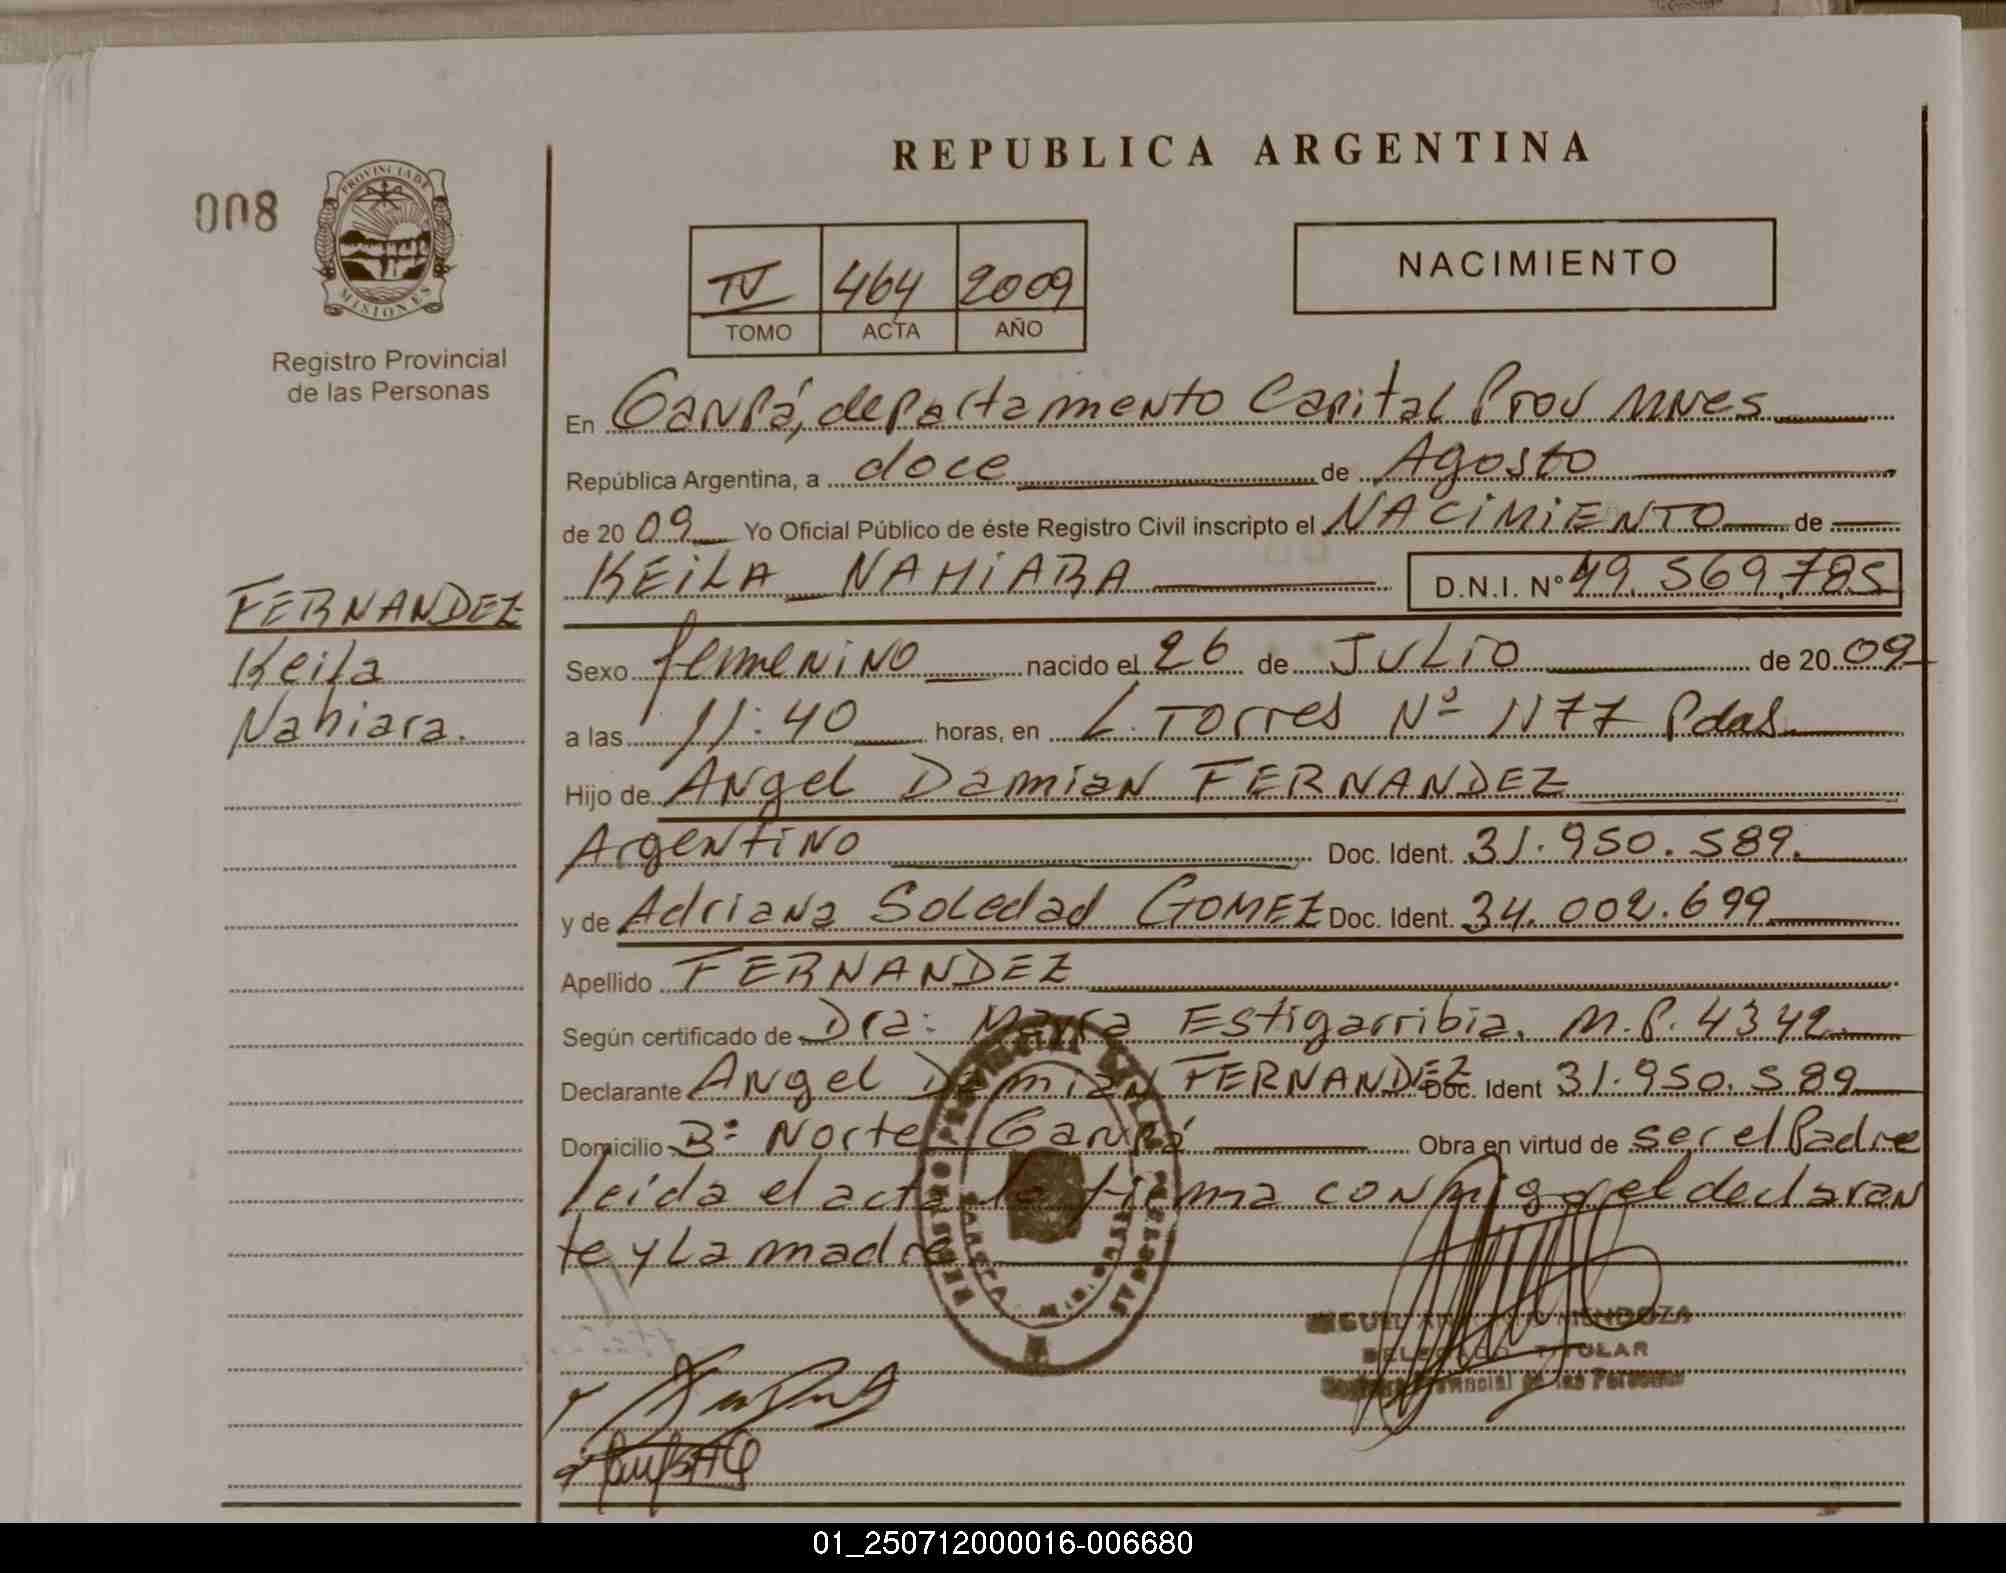 REPUBLICA ARGENTINA
008
PROVINCIA DE
MISIONES
Registro Provincial
de las Personas
NACIMIENTO
IV 464 2009
TOMO ACTA AÑO
En Garupá, departamento Capital Prov Mnes
República Argentina, a doce de Agosto
de 2009 Yo Oficial Público de éste Registro Civil inscripto el NACIMIENTO de
KEILA NAHIARA D.N.I. Nº 49.569.785
FERNANDEZ
Keila
Nahiara.
Sexo femenino nacido el 26 de JULIO de 2009
a las 11:40 horas, en L. Torres Nº 1177 Pdas
Hijo de Angel Damian FERNANDEZ
Argentino Doc. Ident. 31.950.589.
y de Adriana Soledad GOMEZ Doc. Ident. 34.002.699
Apellido FERNANDEZ
Según certificado de Dra: Mayra Estigarribia. M.P. 4342
Declarante Angel Damian FERNANDEZ Doc. Ident 31.950.589
Domicilio Bº Norte Garupá Obra en virtud de ser el Padre
leida el acta la firma conmigo el declaran
te y la madre
MENDOZA
DELEGADO TITULAR
Provincial de las Personas
01_250712000016-006680